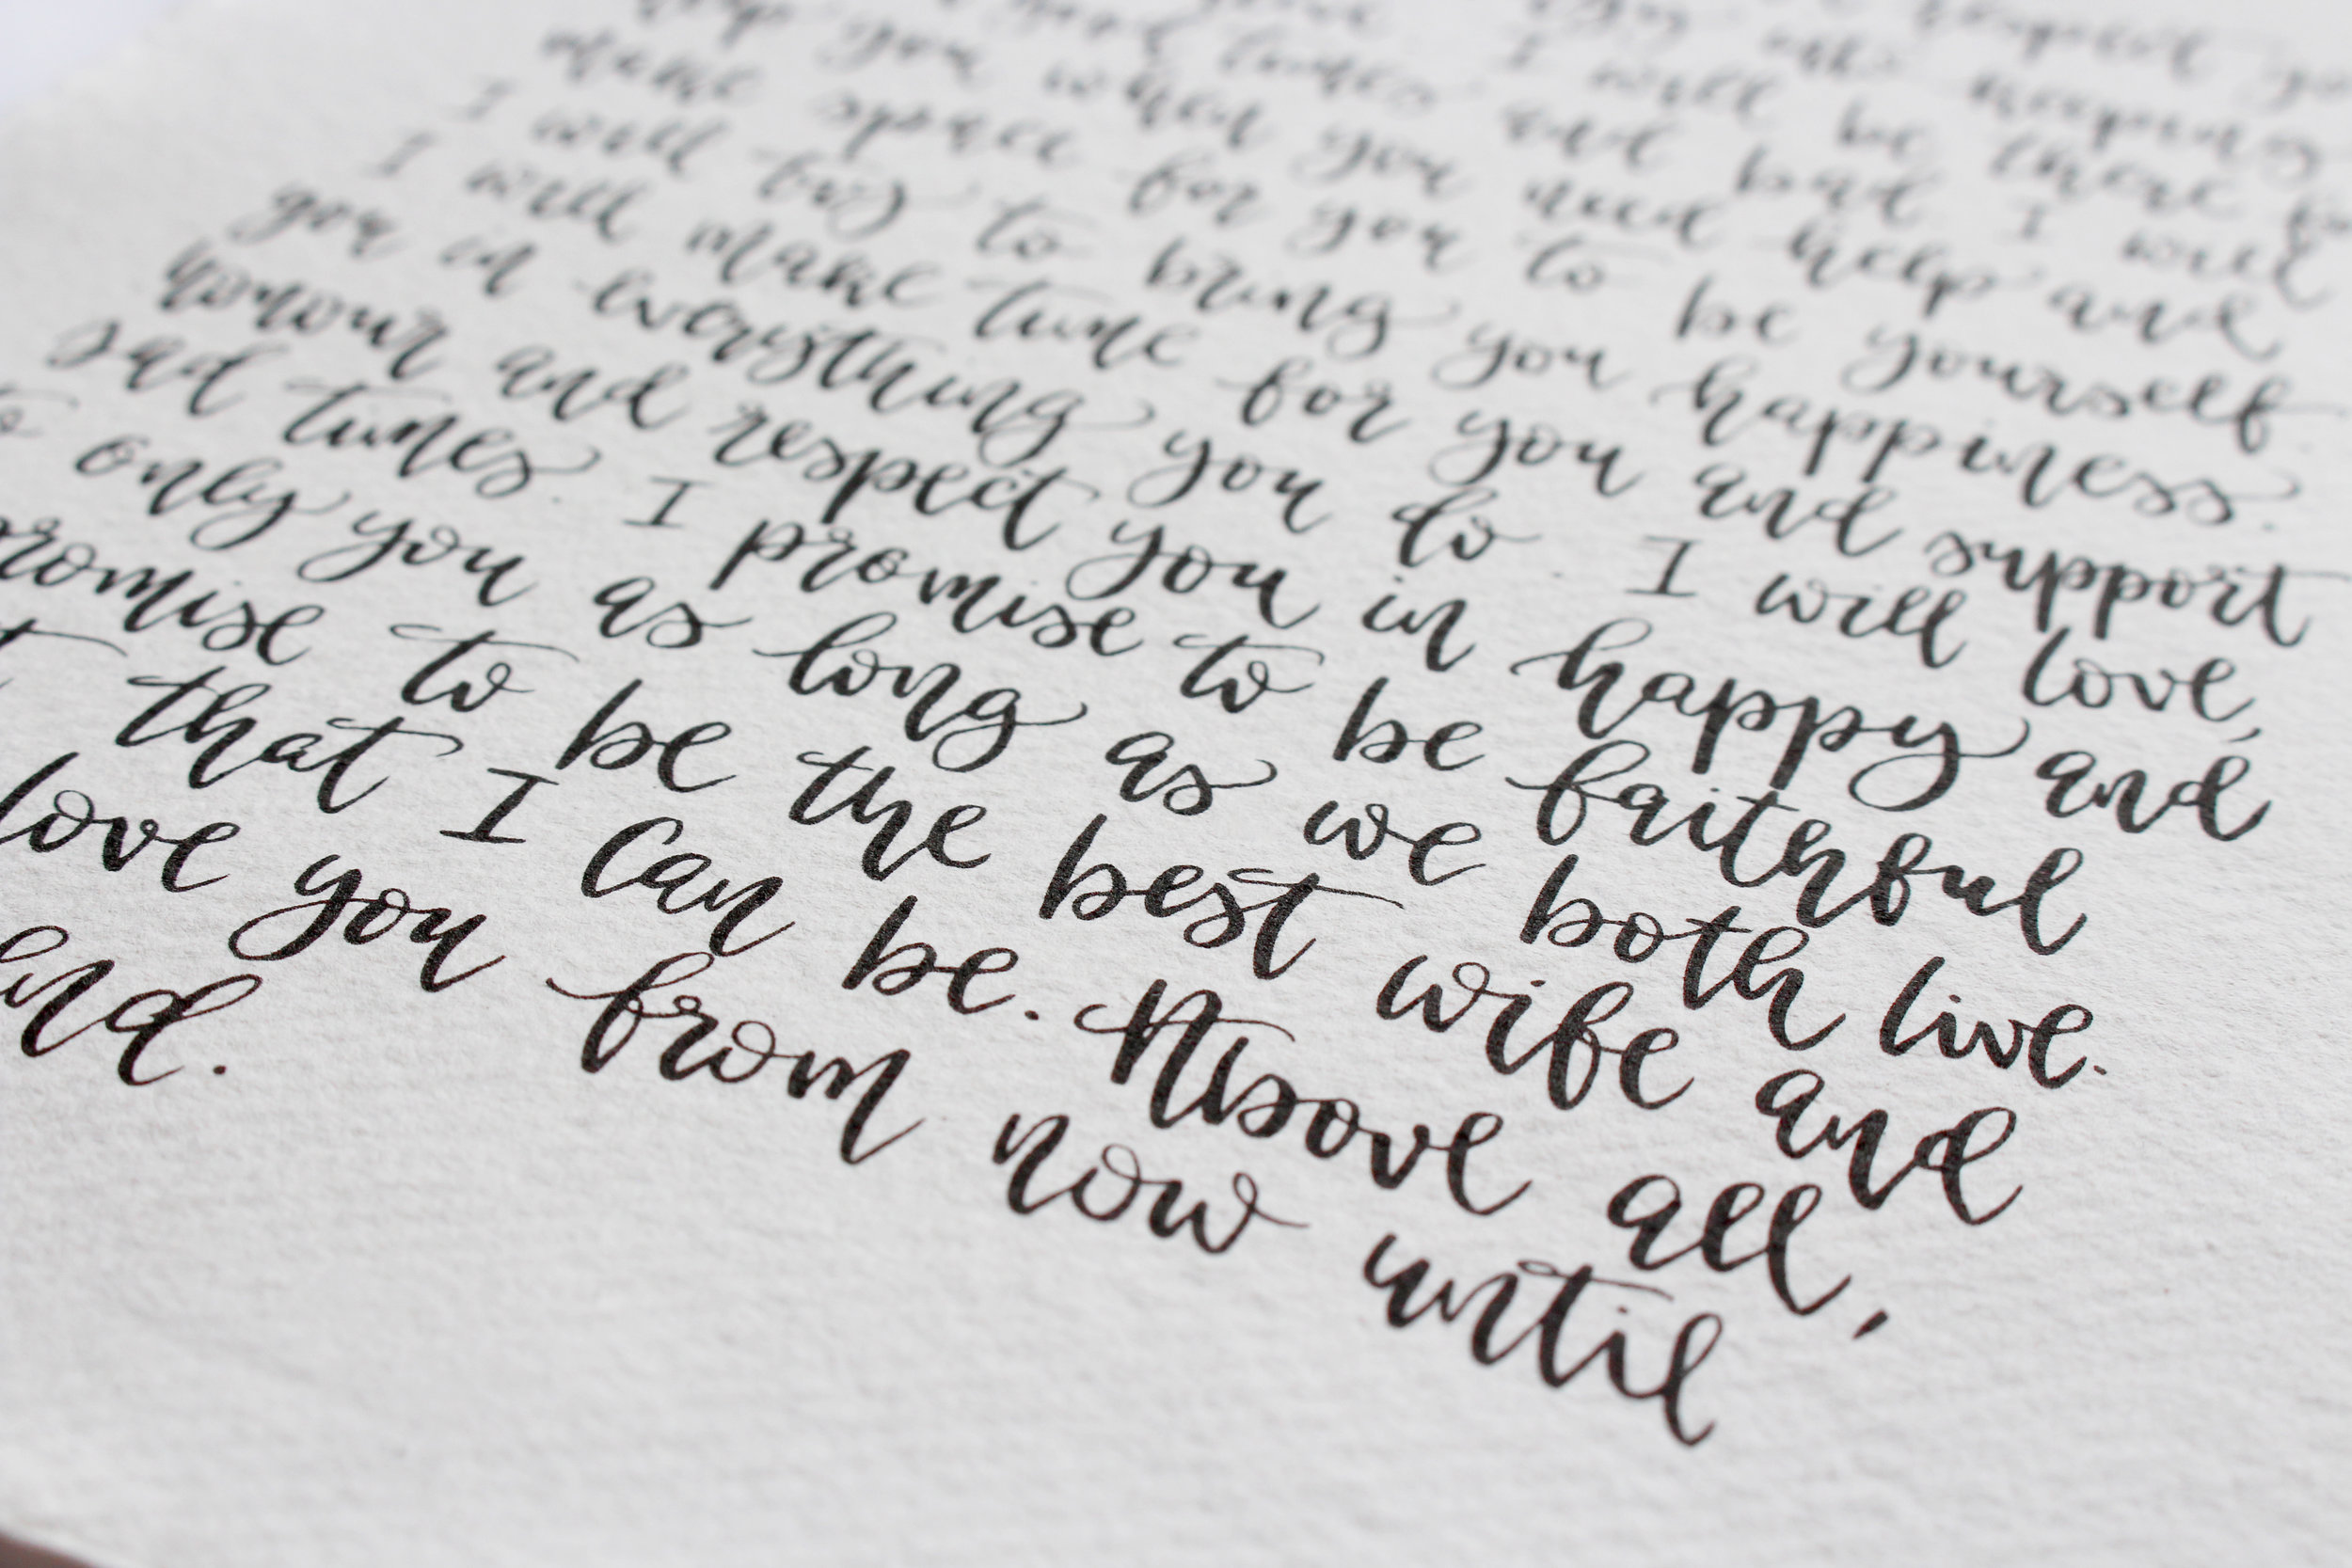 respect
I will be there
times and bad I will
you when you need help and
make space for you to be yourself.
I will try to bring you happiness.
I will make time for you and support
you in everything you do. I will love,
honour and respect you in happy and
sad times. I promise to be faithful
to only you as long as we both live.
promise to be the best wife and
that I can be. Above all,
love you from now until
end.